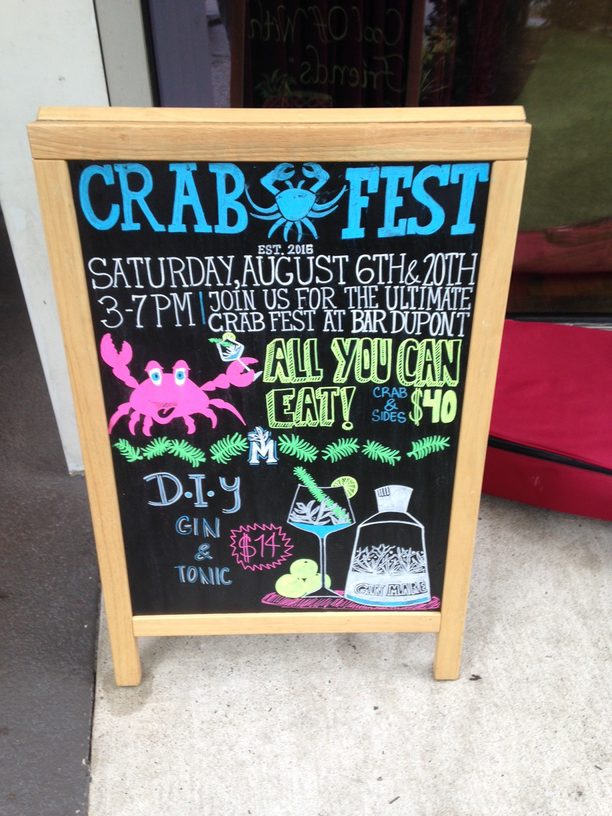 Cool Off With
Friends!
CRAB FEST
EST. 2016
SATURDAY, AUGUST 6TH & 20TH
3-7 PM | JOIN US FOR THE ULTIMATE
CRAB FEST AT BAR DUPONT
ALL YOU CAN
EAT!
CRAB
&
SIDES
$40
M
D·I·Y
GIN
&
TONIC
$14
GIN MARE